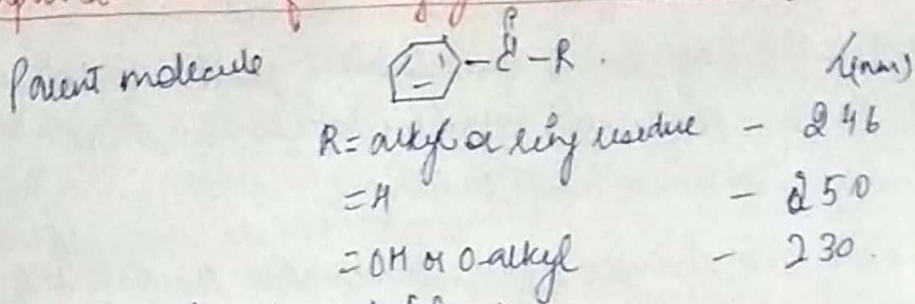 Parent molecule
O
C - R .
λ(nm)
R = alkyl or ring residue - 246
= H - 250
= OH or O-alkyl - 230.